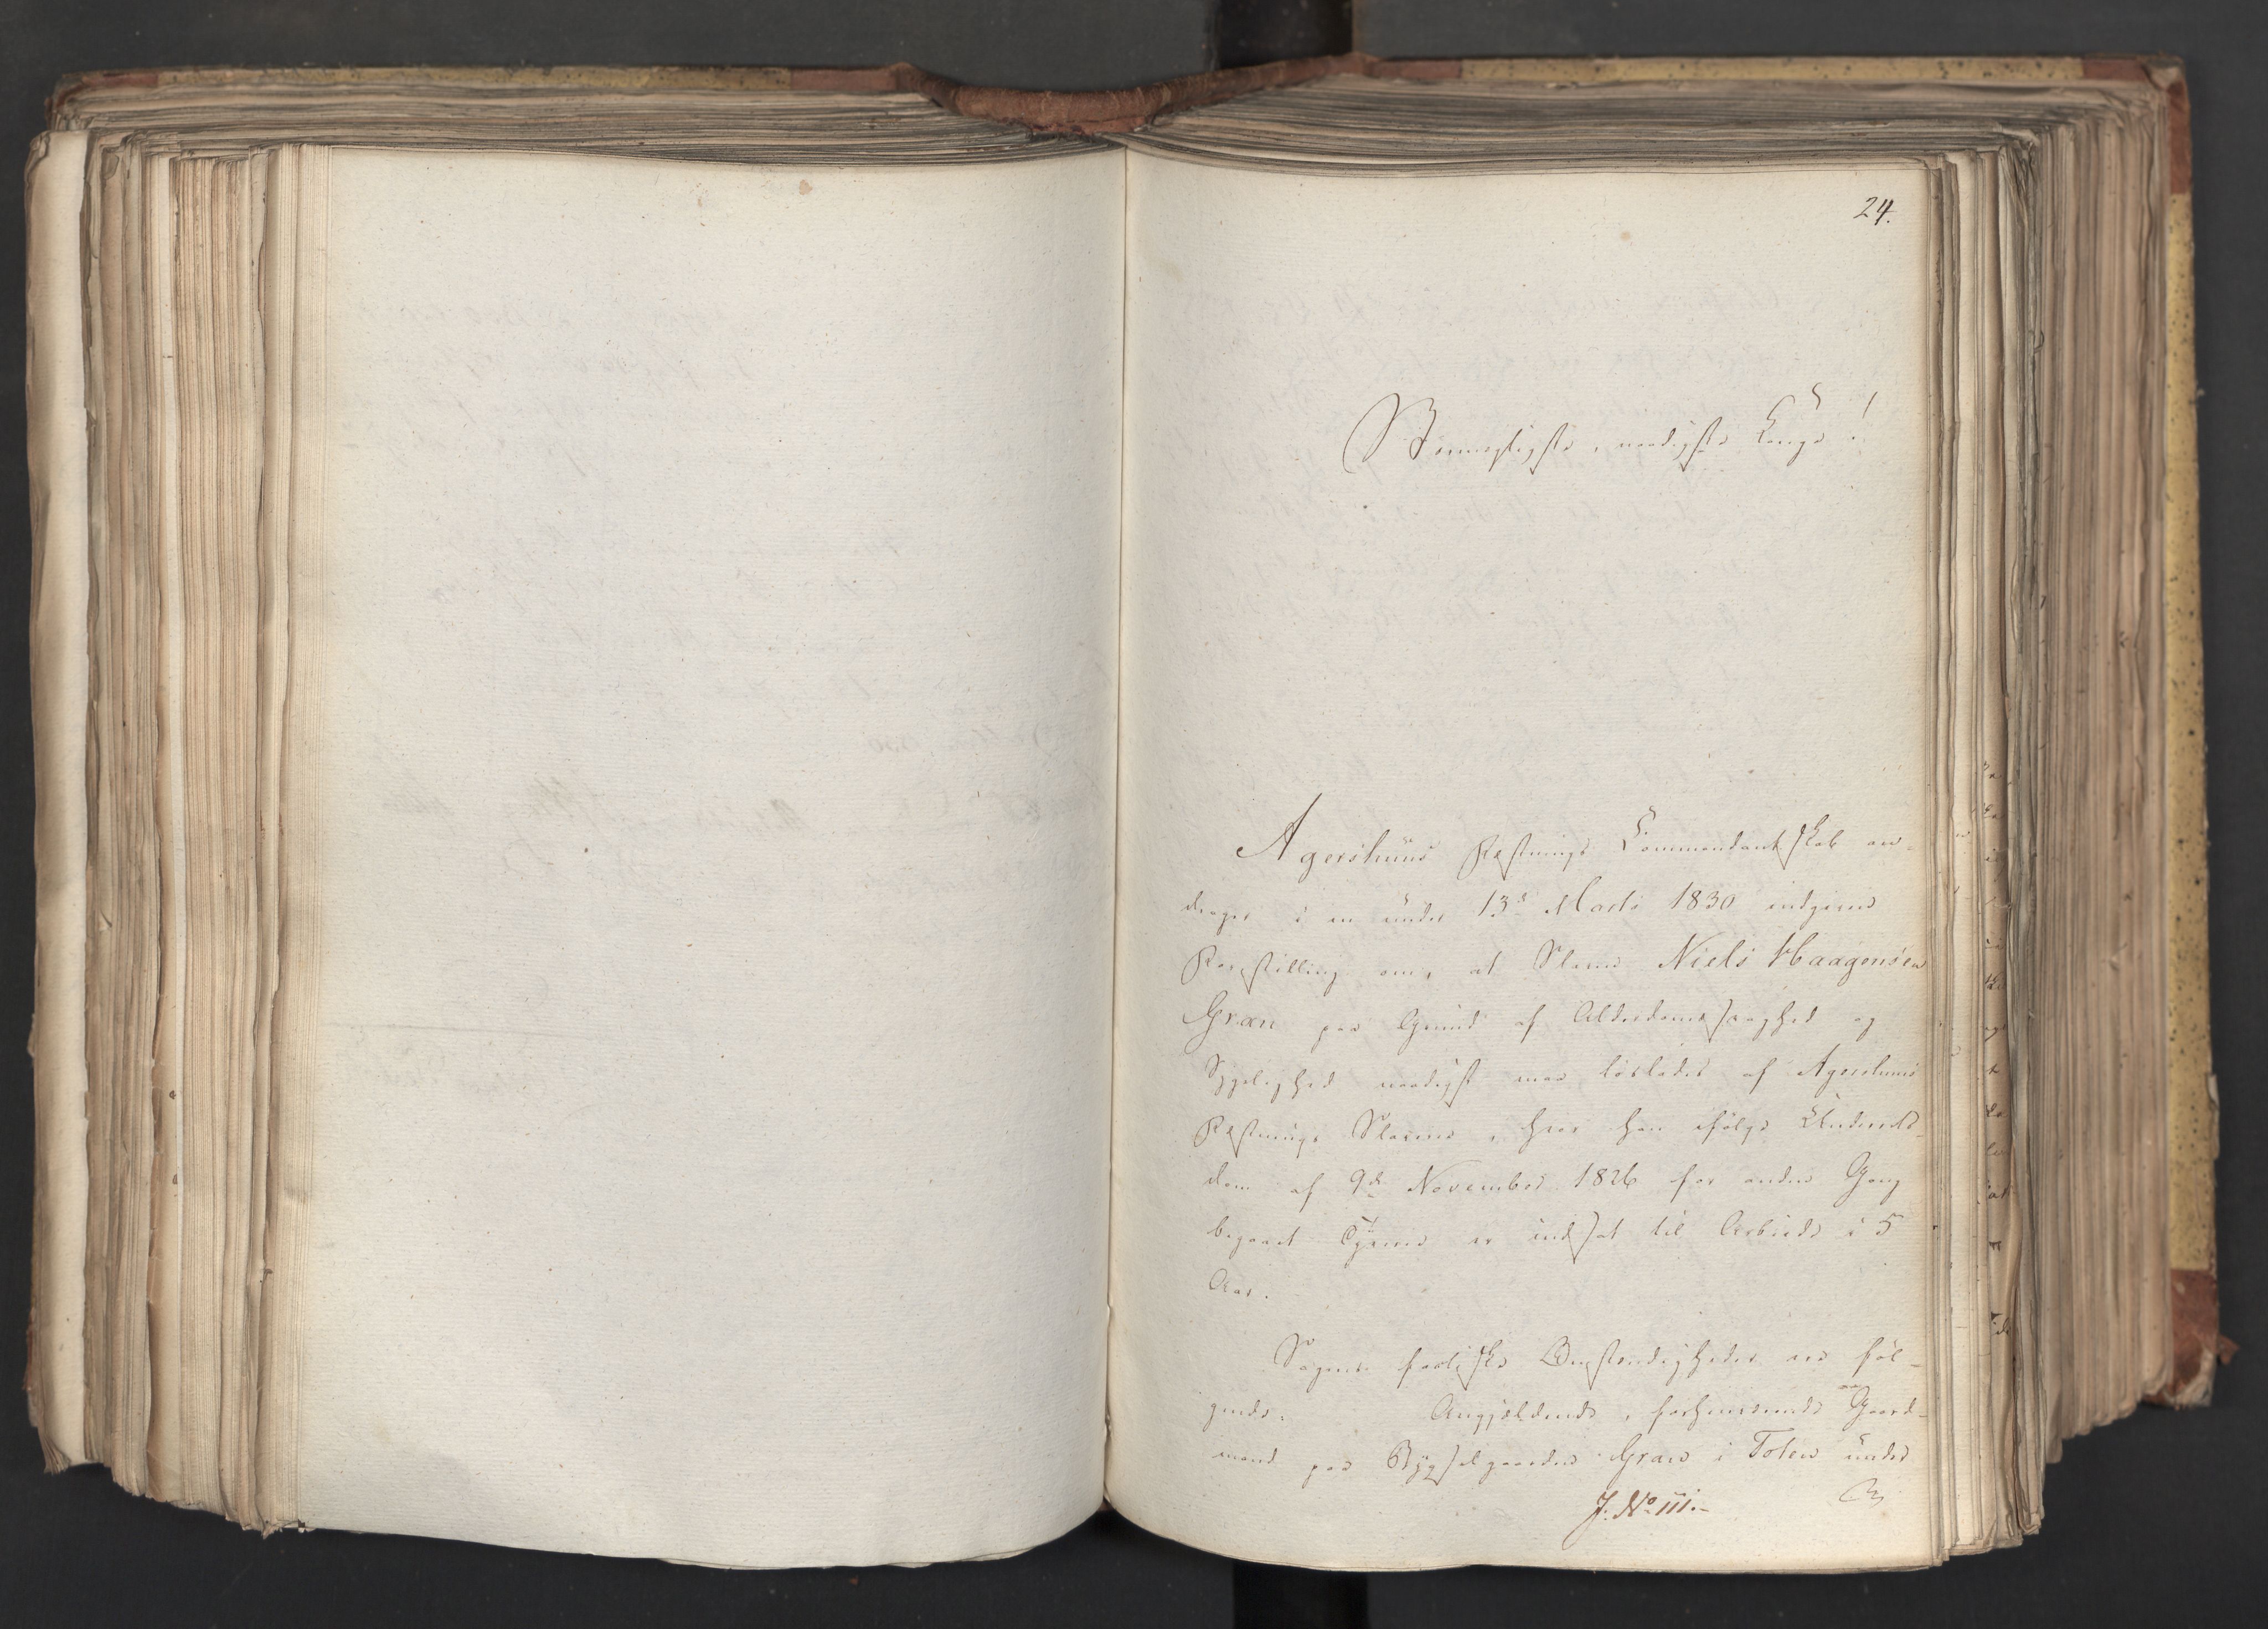 24.
Stormægtigste, naadigste Konge!
Agershuus Fæstnings Commandantskab an-
drager i en under 13de Marts 1830 indgiven
Forestilling om, at Slaven Niels Haagensen
Gran paa Grund af Alderdomssvaghed og
Sygelighed naadigst maa löslades af Agershuus
Fæstnings Slaverie, hvor han ifölge Underrets-
dom af 9de November 1826 for anden Gang
begaaet Tyverie er indsat til Arbeide i 5
Aar.
Sagens factiske Omstændigheder ere föl-
gende. Angjældende, forhenværende Gaard-
mand paa Bygselgaarden Gran i Toten under
J. No 111.-